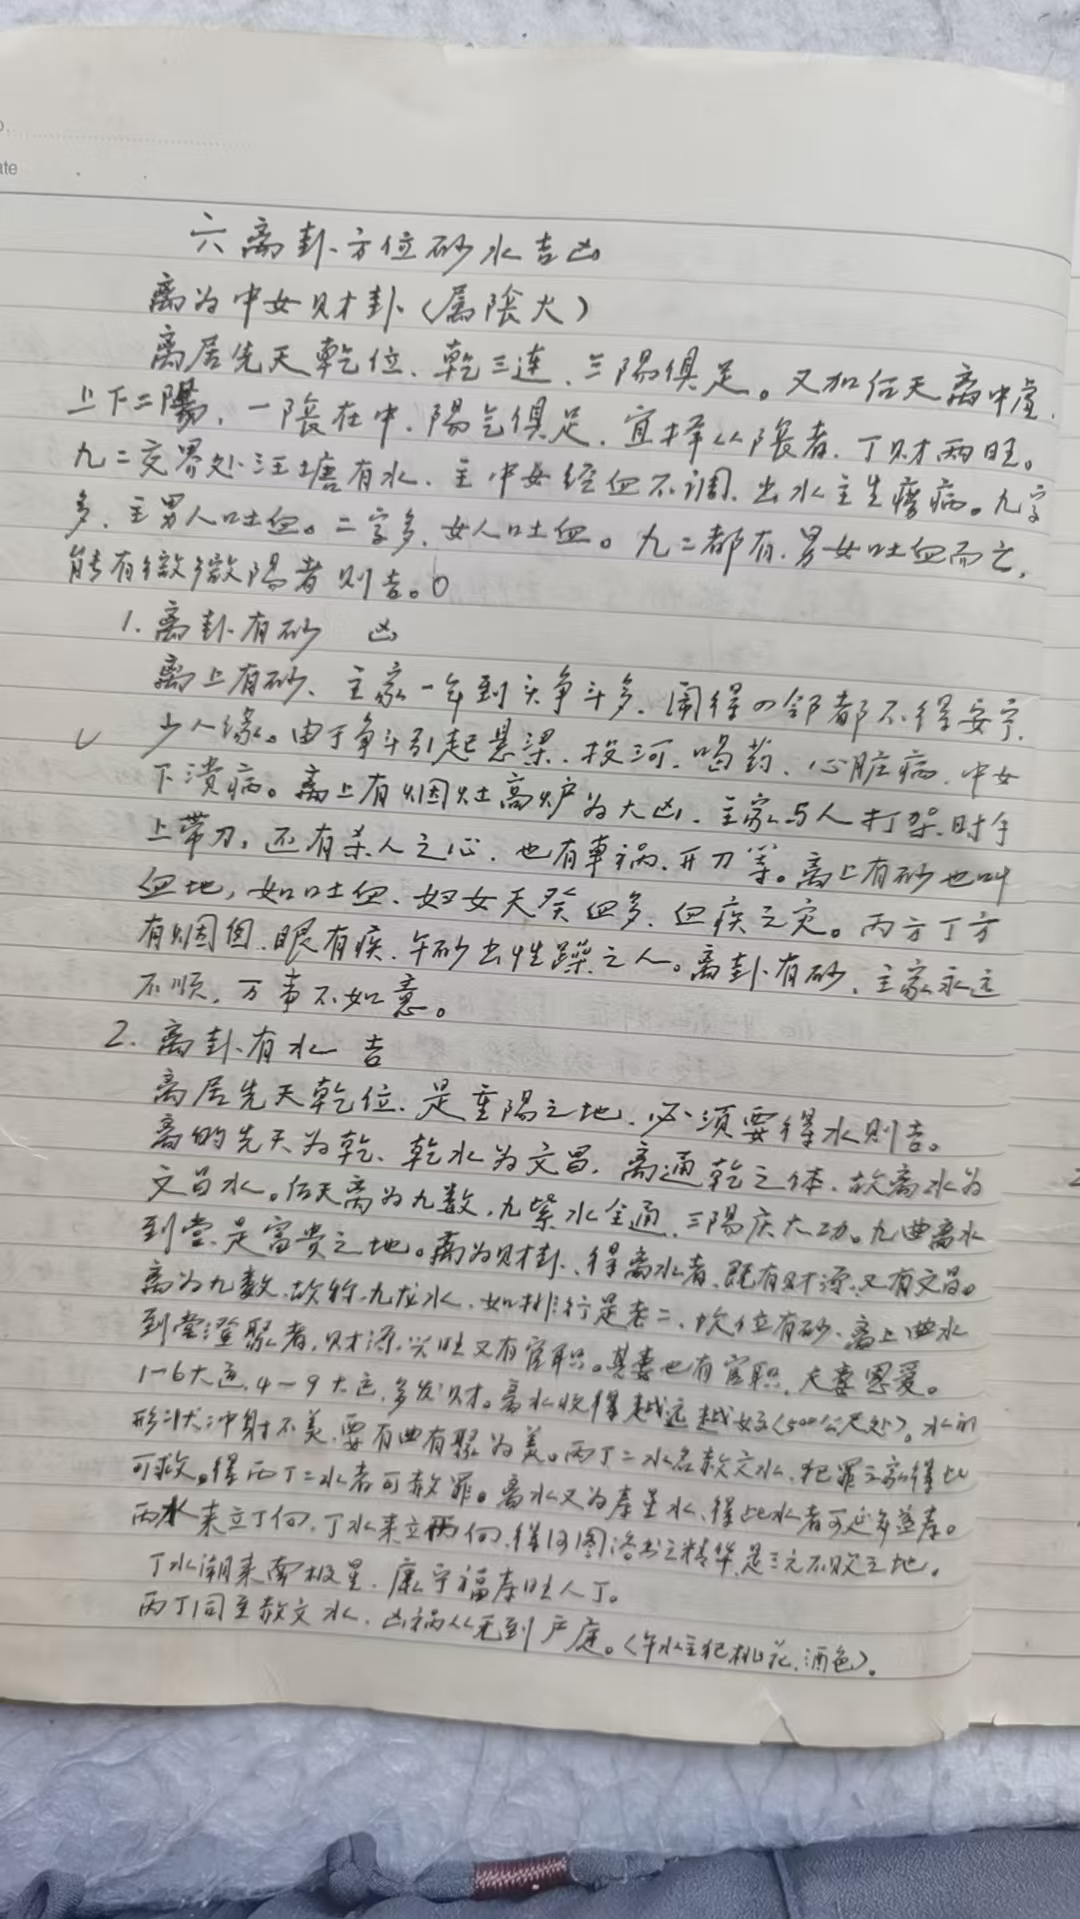 ate
六 离卦方位砂水吉凶
离为中女财卦（属陰火）
离居先天乾位、乾三连、三陽俱足。又加后天离中虚、
上下二陽、一陰在中、陽气俱足、宜择以陰者、丁财两旺。
九二交界处汪塘有水、主中女经血不调、出水主生痨病。九字
多、主男人吐血。二字多、女人吐血。九二都有、男女吐血而亡，
能有微微陽者则吉。
1. 离卦有砂 凶
离上有砂、主家一年到头争斗多、闹得四邻都不得安宁.
少人缘。由于争斗引起悬梁、投河、喝药、心脏病、中女
下溃病。离上有烟灶高炉为大凶、主家与人打架、时手
上带刀，还有杀人之心、也有車祸、开刀等。离上有砂也叫
血地，如吐血、妇女天癸血多、血疾之灾。丙方丁方
有烟囱、眼有疾、午砂出性躁之人。离卦有砂、主家永远
不顺，万事不如意。
2. 离卦有水 吉
离居先天乾位、是重陽之地、必须要得水则吉。
离的先天为乾、乾水为文昌、离通乾之体、故离水为
文昌水。后天离为九数，九紫水全通、三陽庆大功。九曲离水
到堂、是富贵之地。离为财卦、得离水者、既有财源、又有文昌。
离为九数、故称九龙水、如排行是老二、坎位有砂、离上曲水
到堂澄聚者，财源兴旺又有官职。其妻也有官职、夫妻恩爱。
1-6大运、4-9大运、多发财。离水收得越远越好（500公尺处）。水的
形状冲射不美、要有曲有聚为美。丙丁二水名赦文水、犯罪主家得此
可救。得丙丁二水者可赦罪。离水又为寿星水、得此水者可延年益寿。
丙水来立丁向、丁水来立丙向、得河图洛书之精华、是三元不败之地。
丁水潮来南极星、康宁福寿旺人丁。
丙丁同至赦文水、凶祸从无到户庭。（午水主犯桃花、酒色）。